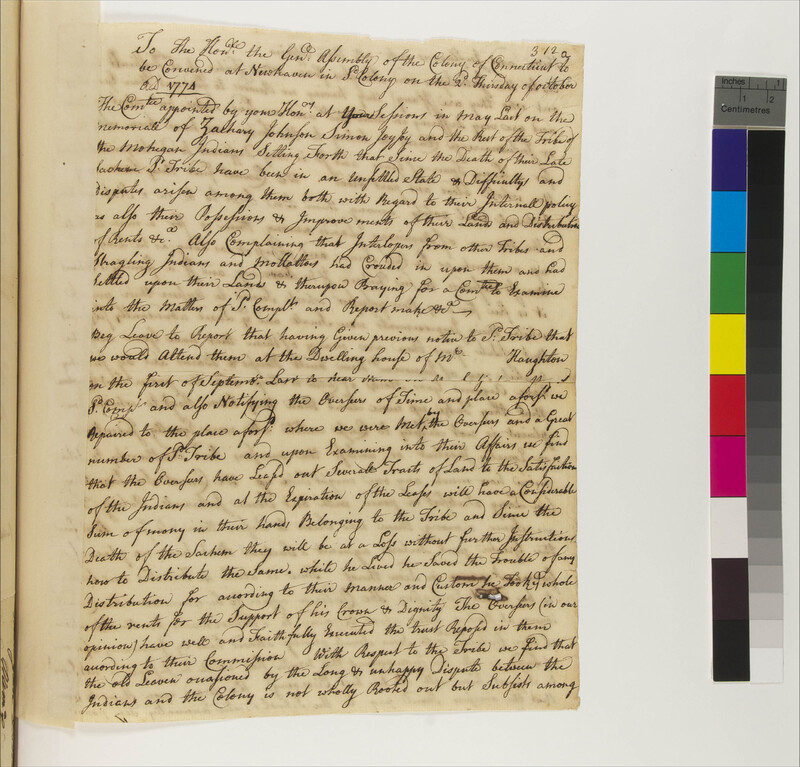 312a
To the Honble the Genl Assembly of the Colony of Connecticut to
be Convened at Newhaven in Sd Colony on the 2d Thirsday of october
AD 1774
The Comtte appointed by your Honrs at Your Sessions in May Last on the
memorial of Zachary Johnson Simon Joyjoy and the Rest of the Tribe of
the Mohegan Indians Setting Forth that Since the Death of their Late
Sachem Sd Tribe have been in an unsettled State & Difficultys and
disputes arisen among them both with Regard to their Internall policy
as also their Possessions & Improvements of their Lands and Distribution
of Rents &c. Also Complaining that Interlopers from other Tribes and
Stragling Indians and Mollattoes had Crouded in upon them and had
settled upon their Lands & therupon Praying for a Comtte to Examine
into the Matters of Sd Complt and Report make &c
Beg Leave to Report that having Given previous notice to Sd Tribe that
we would Attend them at the Dwelling house of Mr Haughton
on the first of Septemr Last to hear them
Sd Complt and also Notifying the Overseers of Time and place aforsd we
Repaired to the place aforsd where we were Met by the Overseers and a Great
number of Sd Tribe and upon Examining into their Affairs we find
that the Overseers have Leasd out Severall Tracts of Land to the Satisfaction
of the Indians and at the Expiration of the Leases will have a Considerable
Sum of mony in their hands Belonging to the Tribe and Since the
Death of the Sachem they will be at a Loss without further Instructions
how to Distribute the Same. while he Lived he Saved the Trouble of any
Distribution for according to their Manner and Custom he Took ye whole
of the rents for the Support of his Crown & Dignity The Overseers (in our
opinion) have well and Faithfully Executed the trust Reposd in them
according to their Commission With Respect to the Tribe we find that
the old Leaven occasioned by the Long & unhappy Dispute between the
Indians and the Colony is not wholly Rooted out but Subsists among
inches
1 2
Centimetres